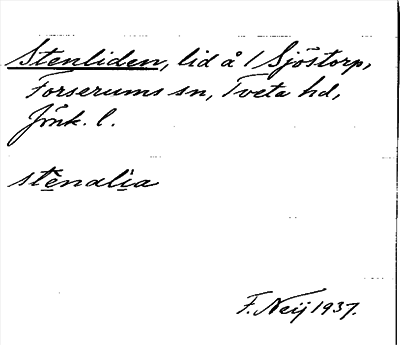 Stenliden, lid å 1 Sjöstorp,
Forserums sn, Tveta hd,
Jönk. l.
stẹnalịa
F. Neij 1937.